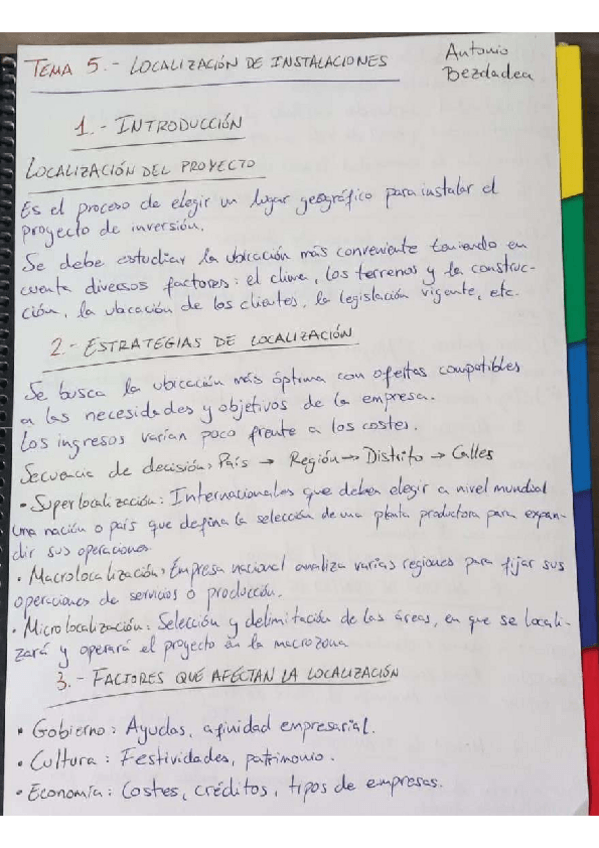 TEMA 5.- LOCALIZACIÓN DE INSTALACIONES
Antonio
Bezdadea
1.- INTRODUCCIÓN
LOCALIZACIÓN DEL PROYECTO
Es el proceso de elegir un lugar geográfico para instalar el
proyecto de inversión.
Se debe estudiar la ubicación más conveniente teniendo en
cuenta diversos factores: el clima, los terrenos y la construc-
ción, la ubicación de los clientes, la legislación vigente, etc.
2.- ESTRATEGIAS DE LOCALIZACIÓN
Se busca la ubicación más óptima con ofertas compatibles
a las necesidades y objetivos de la empresa.
Los ingresos varían poco frente a los costes.
Secuencia de decisión: País → Región → Distrito → Calles
• Superlocalización: Internacionales que deben elegir a nivel mundial
una nación o país que defina la selección de una planta productora para expan-
dir sus operaciones.
• Macrolocalización: Empresa nacional analiza varias regiones para fijar sus
operaciones de servicios o producción.
• Microlocalización: Selección y delimitación de las áreas, en que se locali-
zará y operará el proyecto en la macrozona
3.- FACTORES QUE AFECTAN LA LOCALIZACIÓN
• Gobierno: Ayudas, afinidad empresarial.
• Cultura: Festividades, patrimonio.
• Economía: Costes, créditos, tipos de empresas.